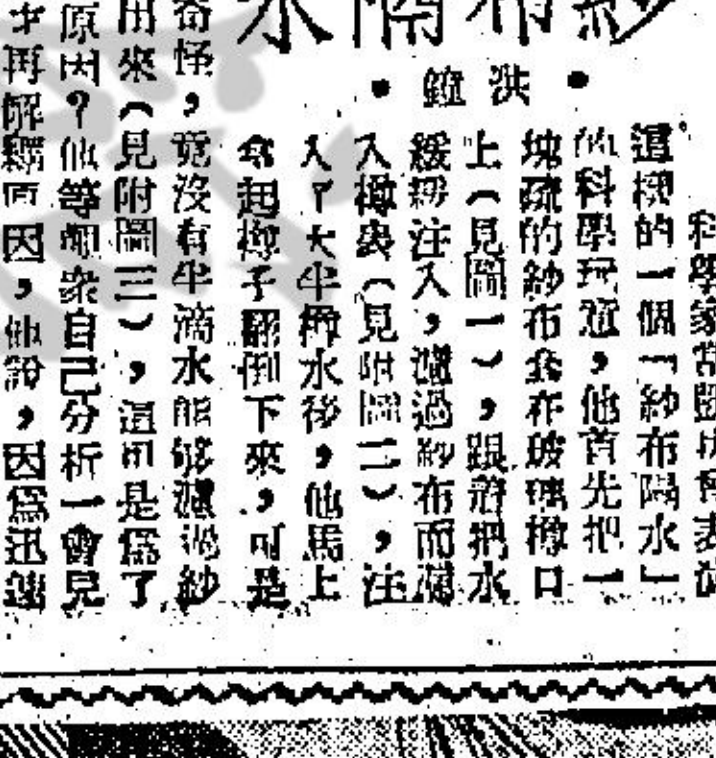 紗布隔水
洪鐘
科學家常
這樣的一個「紗布隔水」
的科學玩意，他首先把一
塊疏的紗布套在玻璃樽口
上（見圖一），跟着把水
緩緩注入，濾過紗布而瀉
入樽裏（見附圖二），注
入了大半樽水後，他馬上
拿起樽子翻倒下來，可是
奇怪，竟沒有半滴水能够濾過紗
出來（見附圖三），這可是爲了
原因？他等觀衆自己分析一會兒
才再解釋原因，他說，因爲迅速